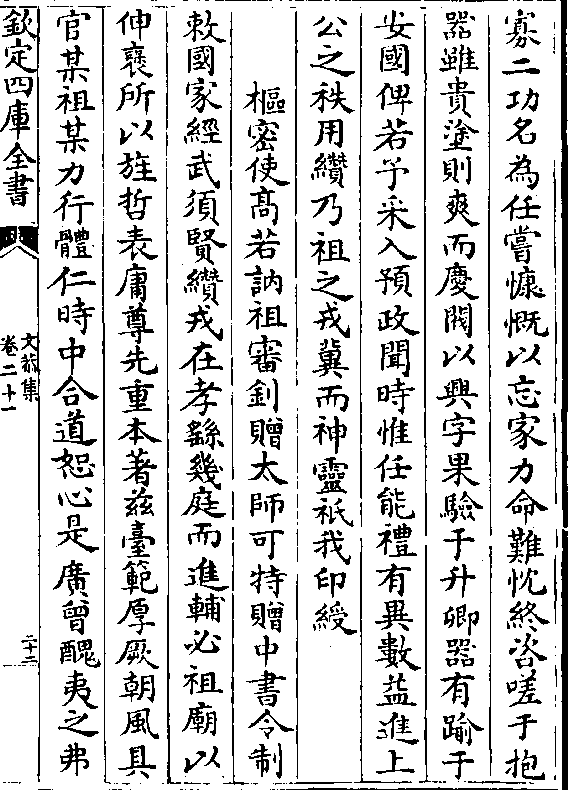 寡二功名為任嘗慷慨以忘家力命難忱終咨嗟于抱
器雖貴塗則爽而慶閥以興字果驗于升卿器有踰于
安國俾若予采入預政聞時惟任能禮有異數葢進上
公之秩用纘乃祖之戎冀而神靈祇我印綬
樞密使髙若訥祖審釗贈太師可特贈中書令制
敕國家經武須賢纘戎在孝繇幾庭而進輔必祖廟以
伸褒所以旌哲表庸尊先重本著兹臺範厚厥朝風具
官某祖某力行體仁時中合道恕心是廣曾醜夷之弗
欽定四庫全書
文恭集
卷二十一
二十二